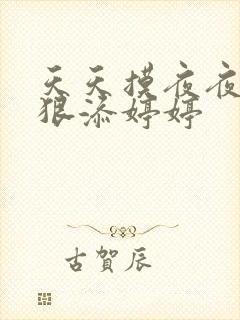 天天摸夜夜
狠添婷婷
古賀辰